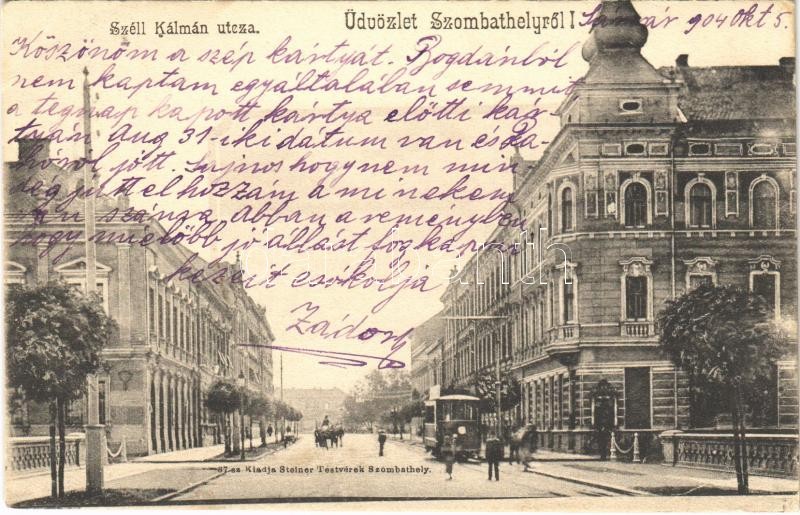 Széll Kálmán utcza.
Üdvözlet Szombathelyről!
904 okt 5.
Köszönöm a szép kártyát. Bogdánból
nem kaptam egyáltalában semmit
a tegnap kapott kártya előtti kár-
tyán Aug 31-iki dátum van és
jött. Sajnos hogy nem min
jutt el hozzám a mi nekem
van szánva. Abban a reményben
hogy mielőbb jó állást fog kapni
kezeit csókolja
Zádor
37 sz. Kiadja Steiner Testvérek Szombathely.